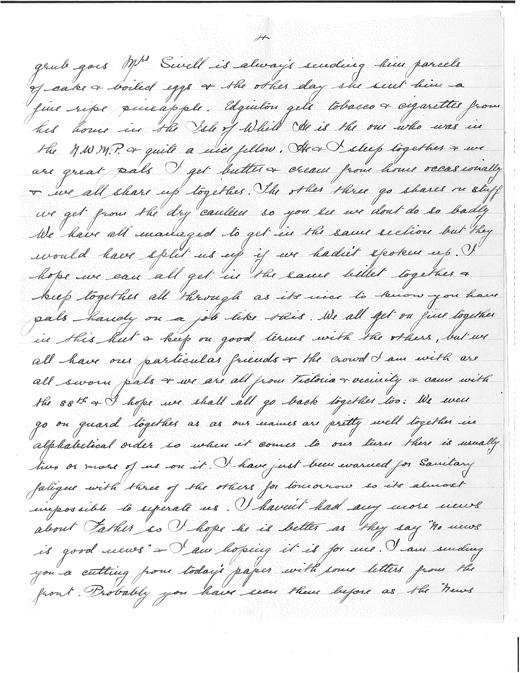 4
grub goes Mrs Sivell is always sending him parcels
of cake & boiled eggs & the other day she sent him a
fine ripe pineapple. Edginton gets tobacco & cigarettes from
his home in the Isle of White He is the one who was in
the N.W.M.P. & quite a nice fellow. He & I sleep together & we
are great pals I get butter & cream from home occasionally
& we all share up together. The other three go shares on stuff
we get from the dry canteen so you see we dont do so badly
We have all managed to get in the same section but they
would have split us up if we hadn't spoken up. I
hope we can all get in the same billet together &
keep together all through as its nice to know you have
pals handy on a job like this. We all get on fine together
in this hut & keep on good terms with the others, but we
all have our particular friends & the crowd I am with are
all sworn pals & we are all from Victoria & vicinity & came with
the 88th & I hope we shall all go back together too: We even
go on guard together as as our names are pretty well together in
alphabetical order so when it comes to our turn there is usually
two or more of us on it. I have just been warned for Sanitary
fatigue with three of the others for tomorrow so its almost
impossible to seperate us. I haven't had any more news
about Father so I hope he is better as they say "No news
is good news" & I am hoping it is for me. I am sending
you a cutting from today's paper with some letters from the
front. Probably you have seen them before as the "News